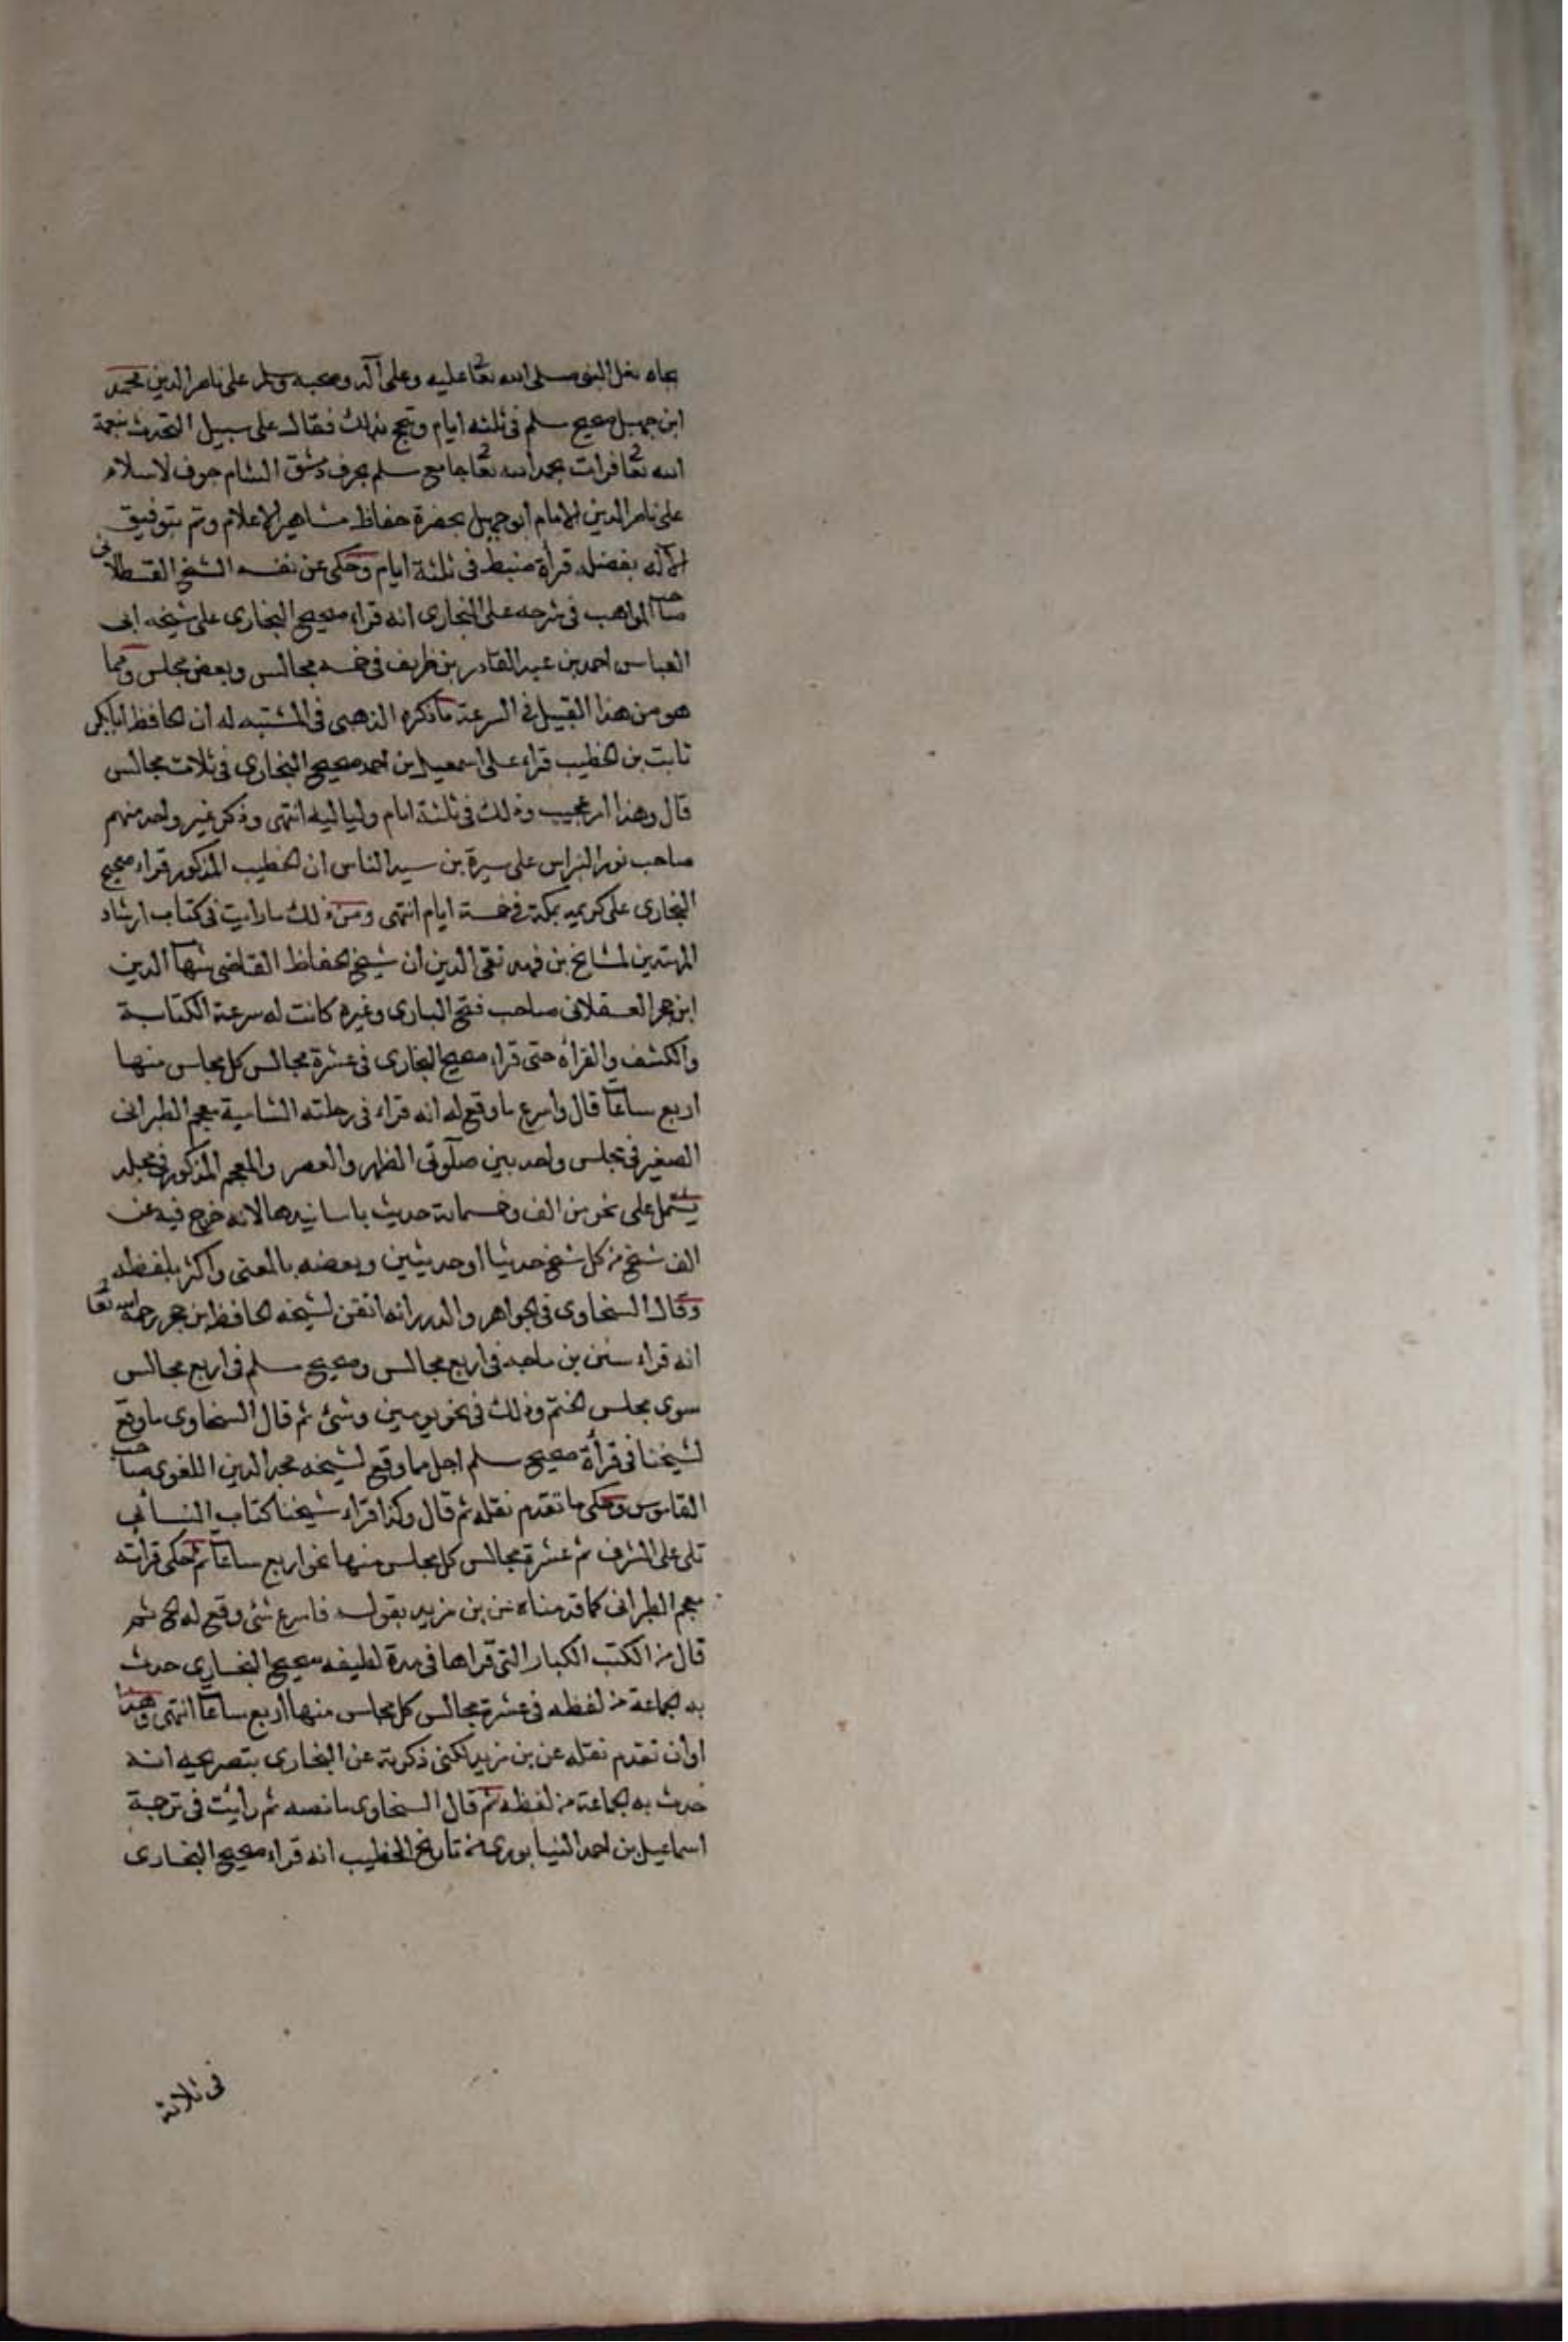 تجاه نعل النبى صلى الله تعا عليه وعلى آله وصحبه وسلم على ناصر الدين محمد
ابن جهبل صحيح مسلم فى ثلثه ايام وتبجح بذلك فقال على سبيل التحدث بنعمة
الله تعا قرات بحمد الله تعا جامع مسلم بجوف دمشق الشام جوف لاسلام
على ناصر الدين الامام ابن جهبل بحضرة حفاظ مشاهير الاعلام وتم بتوفيق
الاله بفضله قرأة ضبط فى ثلثة ايام وحكى عن نفسه الشيخ القسطلانى
صاحب المواهب فى شرحه على البخارى انه قراء صحيح البخارى على شيخه ابى
العباس احمد بن عبد القادر بن طريف فى خمسه مجالس وبعض مجلس ومما
هو من هذا القبيل فى السرعة ما ذكره الذهبى فى المشتبه له ان الحافظ ابا بكر
ثابت بن الخطيب قراء على اسمعيل بن احمد صحيح البخارى فى ثلاث مجالس
قال وهذا امر عجيب وذلك فى ثلثة ايام ولياليه انتهى وذكر غير واحد منهم
صاحب نور النبراس على سيرة بن سيد الناس ان الخطيب المذكور قراء صحيح
البخارى على كريمه بمكة فى خمسة ايام انتهى ومن ذلك ما رايت فى كتاب ارشاد
المهتدين لمشايخ بن فهد تقى الدين ان شيخ الحفاظ القاضى شهاب الدين
ابن حجر العسقلانى صاحب فتح البارى وغيره كانت له سرعة الكتابة
والكشف والقرأه حتى قراء صحيح البخارى فى عشرة مجالس كل مجلس منها
اربع ساعات قال واسرع ما وقع له انه قراء فى رحلته الشامية معجم الطبرانى
الصغير فى مجلس واحد بين صلوتى الظهر والعصر والمعجم المذكور فى مجلد
يشتمل على نحو من الف وخمسمائة حديث باسانيدها لانه خرج فيه عن
الف شيخ من كل شيخ حديثا او حديثين وبعضه بالمعنى واكثر بلفظه
وقال السخاوى فى الجواهر والدرر انه اتفق لشيخه الحافظ ابن حجر رحمه الله تعا
انه قراء سنن بن ماجه فى اربع مجالس وصحيح مسلم فى اربع مجالس
سوى مجلس الختم وذلك فى نحو يومين وشئ ثم قال السخاوى ما وقع
لشيخنا فى قرأة صحيح مسلم اجل مما وقع لشيخه مجد الدين اللغوى صاحب
القاموس وحكى ما تقدم نقله ثم قال وكذا قراء شيخنا كتاب النسائى
على الشرف ثم عشرة مجالس كل مجلس منها نحو اربع ساعات ثم حكى قرأته
معجم الطبرانى كما قدمناه عن بن مزيد بقوله فاسرع شئ وقع له الخ ثم
قال من الكتب الكبار التى قراها فى مدة لطيفه صحيح البخارى حدث
به الجماعة من لفظه فى عشرة مجالس كل مجلس منها اربع ساعات انتهى وهذا
اوان تقدم نقله عن بن مزيد لكنى ذكرته عن البخارى بتصريحه انه
حدث به الجماعة من لفظه ثم قال السخاوى ما نصه ثم رأيت فى ترجمة
اسماعيل بن احمد النيسابورى من تاريخ الخطيب انه قراء صحيح البخارى
فى ثلاثة